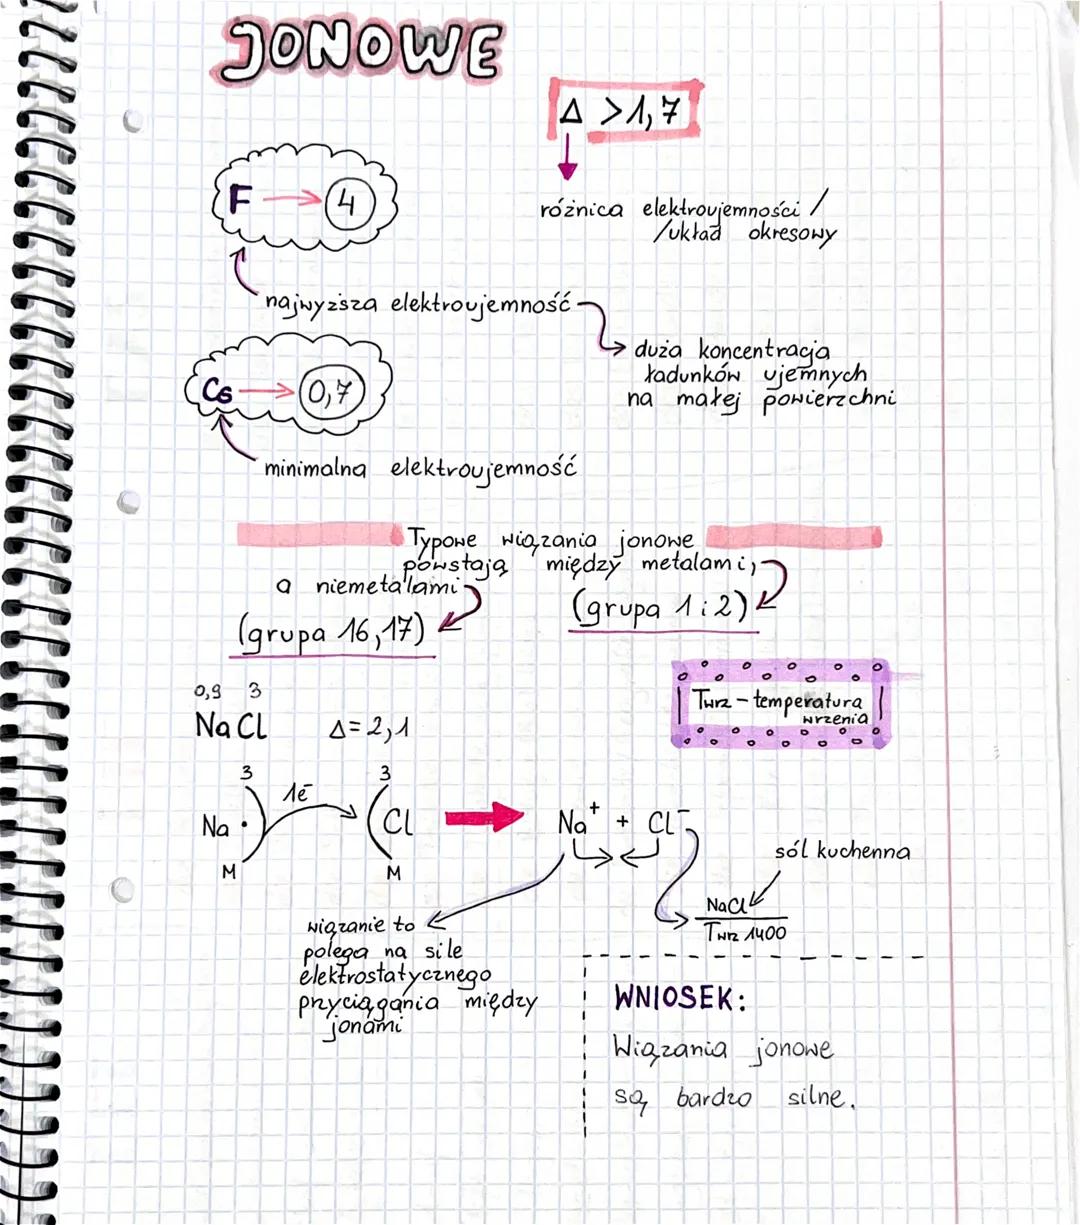 JONOWE
Δ >1,7
F → 4
różnica elektroujemności /
/układ okresowy
najwyższa elektroujemność
duża koncentracja
ładunków ujemnych
na małej powierzchni
Cs → 0,7
minimalna elektroujemność
Typowe wiązania jonowe
powstają między metalami,
a niemetalami
(grupa 1 i 2)
(grupa 16,17)
Twrz - temperatura
wrzenia
0,9 3
NaCl Δ=2,1
3 3
Na · 1e⁻ Cl → Na⁺ + Cl⁻
M M
sól kuchenna
NaCl
Twrz 1400
wiązanie to
polega na sile
elektrostatycznego
przyciągania między
jonami
WNIOSEK:
Wiązania jonowe
są bardzo silne.